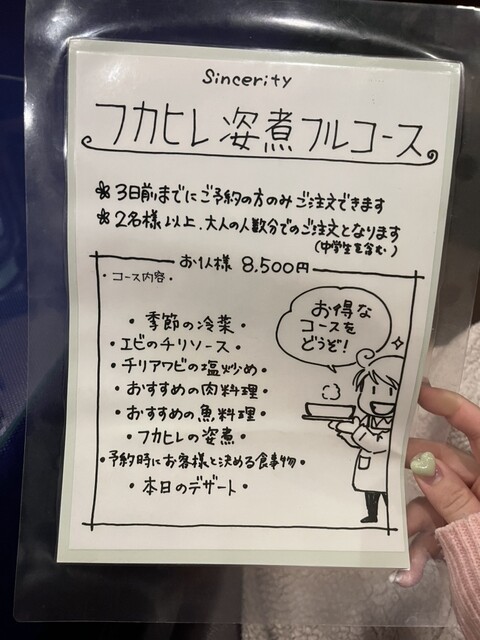 Sincerity
フカヒレ姿煮フルコース
❀3日前までにご予約の方のみご注文できます
❀2名様以上、大人の人数分でのご注文となります
(中学生を含む)
お1人様 8,500円
・コース内容・
・季節の冷菜・
・エビのチリソース・
・チリアワビの塩炒め・
・おすすめの肉料理・
・おすすめの魚料理・
・フカヒレの姿煮・
・予約時にお客様と決める食事物・
・本日のデザート・
お得な
コースを
どうぞ!